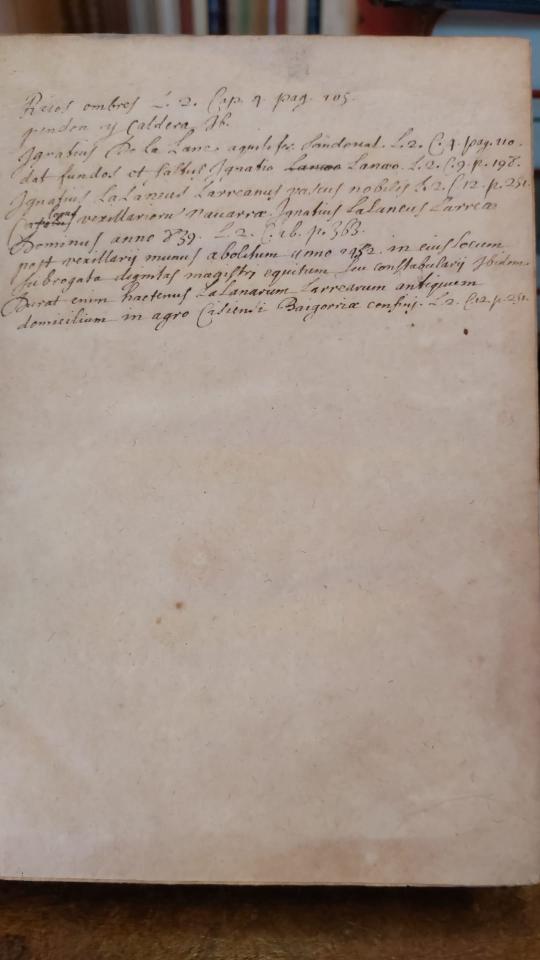 Ricos ombres L. 2. Cap. 4. pag. 105.
pendon y Caldera Ib.
Ignatius De la Lane aquilifer Sandoual. L. 2. C. 4. pag. 110.
dat fundos et saltus Ignatio Lanæo L. 2. C. 9. p. 198.
Ignatius LaLaneus Larreanus pascus nobiles L. 2. C. 12. p. 251.
vexillariorũ Nauarræ. Ignatius LaLaneus Larreæ
Dominus anno 839. L. 2. C. p. 363.
post vexillarij munus abolitum anno in eius locum
subrogata dignitas magistri equitum seu constabularij Ibidem.
Durat enim hactenus LaLanarum Larrearum antiquum
domicilium in agro Cisiensi Baigorriæ confinij. L. 2. C. 12. p. 251.